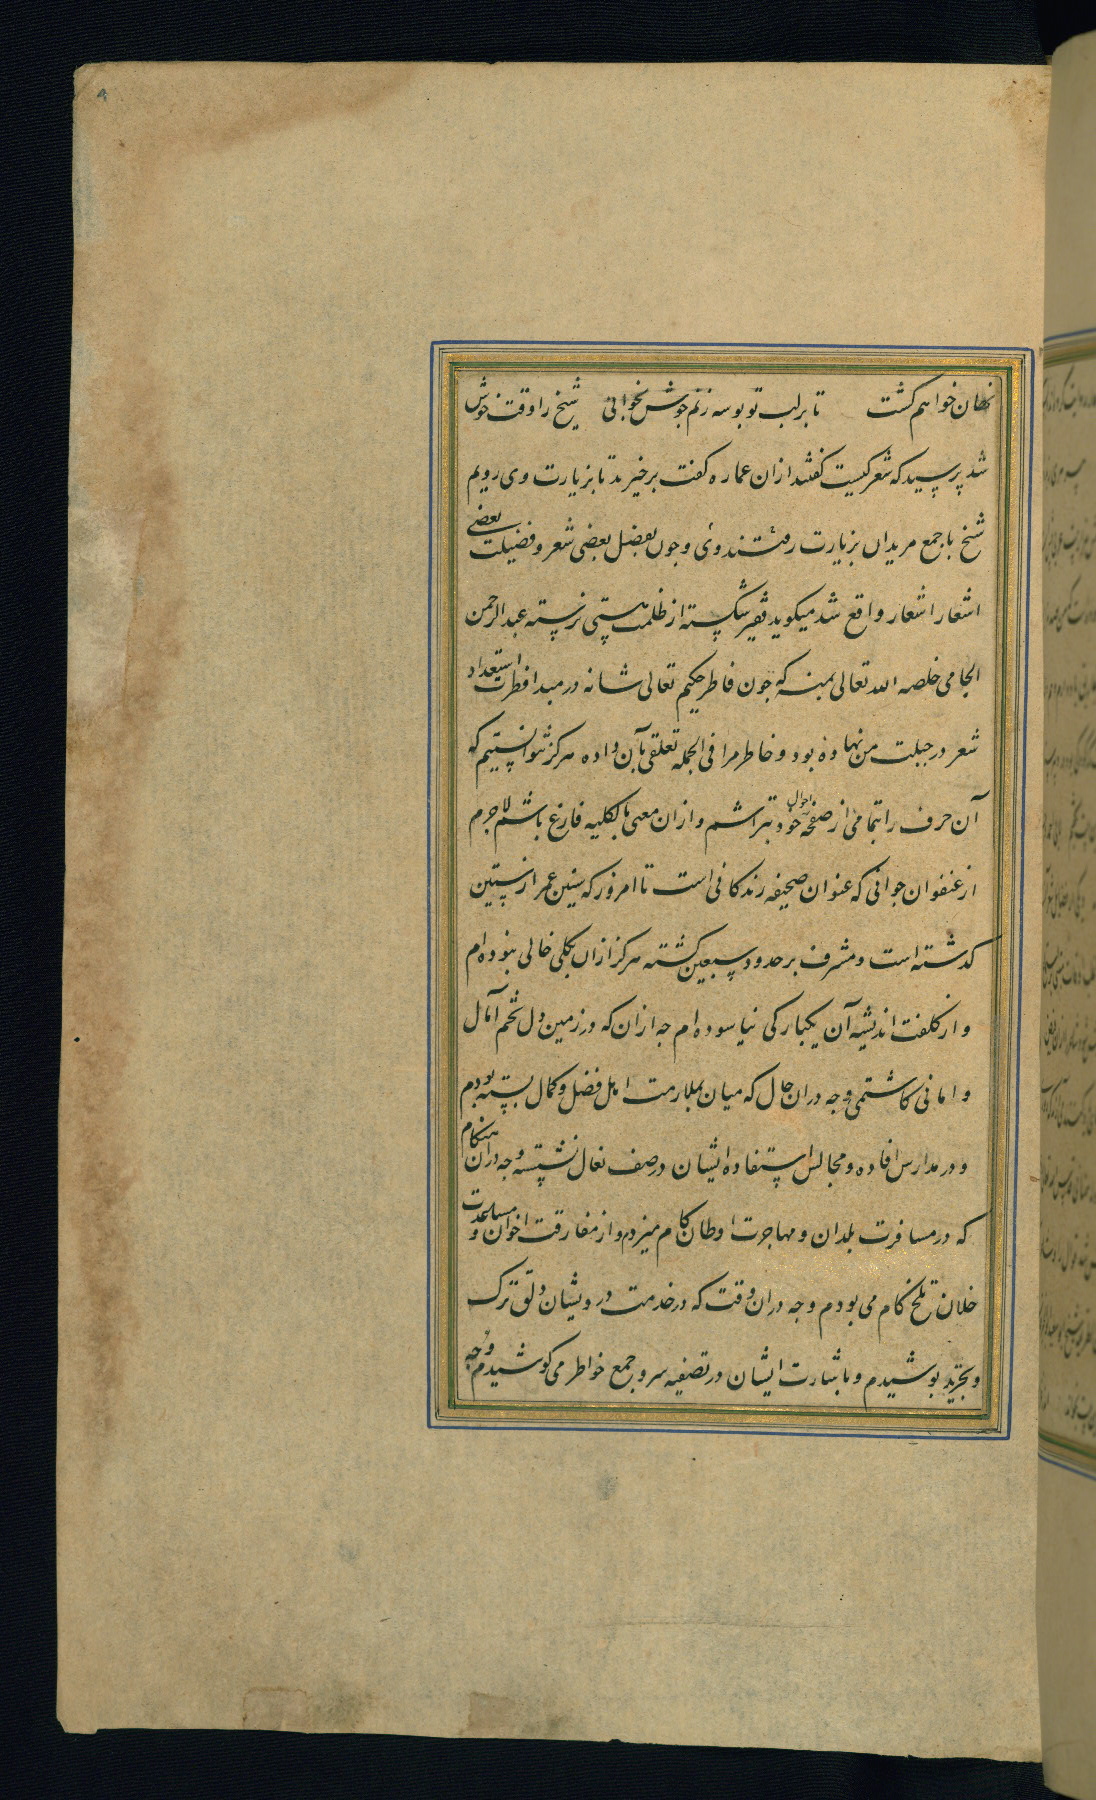 نهان خواهم کشت تا برلب تو بوسه زنم جوش بخوانی شیخ را وقت خوش
شد پرسید که شعر کیست کفتند ازان عماره کفت برخیزید تا بزیارت وی رویم
شیخ با جمع مریدان بزیارت رفتند وی وجون بعضل بعضی شعر و فضیلت بعضی
اشعار اشعار واقع شد میکوید فقیر شکسته از ظلمت هستی نرسته عبدالرحمن
الجامی خلصه الله تعالی بمنه که جون فاطر حکیم تعالی شانه در مبدا فطرت استعداد
شعر در جبلت من نهاده بود و خاطر مرا فی الجمله تعلقی بآن داده هرکز نتوانستیم که
آن حرف را بتمامی از صفحه احوال خود بتراشم و ازان معنی بالکلیه فارغ باشم لاجرم
از عنفوان جوانی که عنوان صحیفه زندکانی است تا امروز که سنین عمر از ستین
کذشته است و مشرف بر حدود سبعین کشته هرکز ازان بکلی خالی نبوده ام
و از کلفت اندیشه آن یکبارکی نیاسوده ام جه ازان که در زمین دل تخم آمال
و امانی کاشتمی وجه دران حال که میان بملازمت اهل فضل و کمال بسته بودم
و در مدارس افاده و مجالس استفاده ایشان در صف نعال نشسته وجه دران هنکام
که در مسافرت بلدان و مهاجرت اوطان کام میزدم و از مفارقت اخوان و مباعدت
خلان تلخ کام می بودم وجه دران وقت که در خدمت درویشان دلق ترک
و تجرید پوشیدم و باشارت ایشان در تصفیه سر و جمع خواطر می کوشیدم وجه